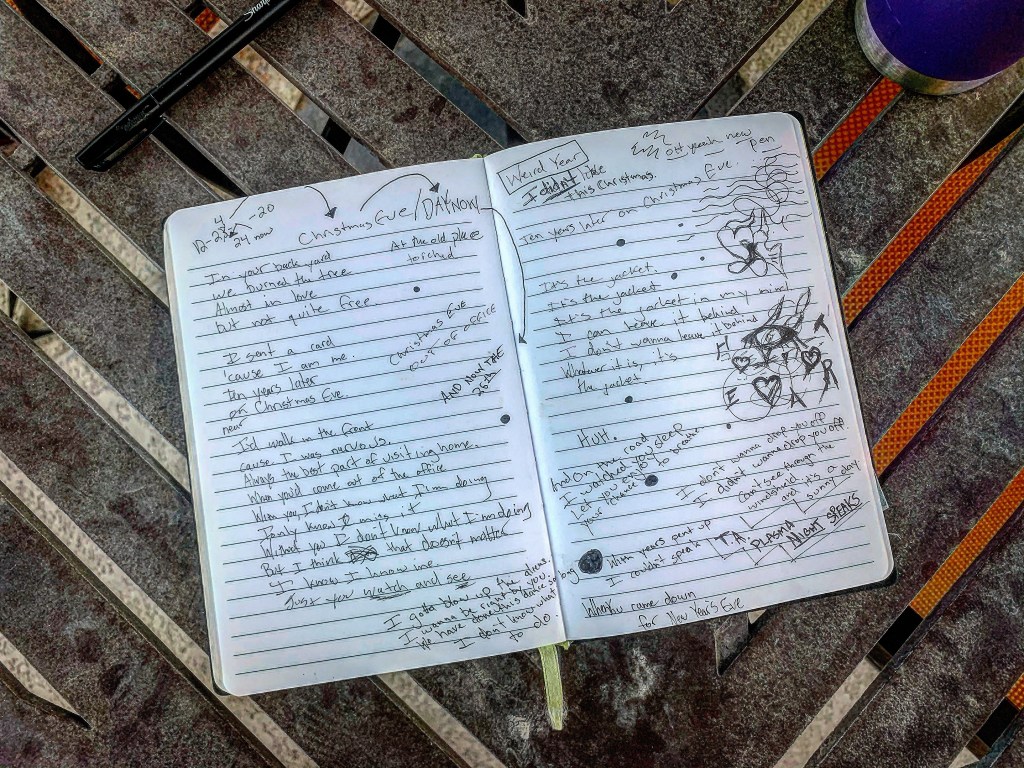 Sharpie
4
12-23
-20
24 now
Christmas Eve/DAY NOW
In your back yard
we burned the tree
Almost in love
but not quite free
At the old place
torched
I sent a card
'cause I am me.
Ten years later
on Christmas Eve.
near
Christmas Eve
OUT OF OFFICE
AND NOW THE
26th
I'd walk in the front
cause I was nervous.
Always the best part of visiting home.
When you'd come out of the office
When you I don't know what I'm doing
I only know I miss it
Without you I don't know what I'm doing
But I think that doesn't matter
I know I know me.
Just you watch and see
I gotta blow up the
I wanna be right by you.
We have done this dance so long
I don't know what
to do
Weird Year
I didn't like
this Christmas.
OH yeeah new
pen
Ten years later on Christmas Eve.
It's the jacket.
It's the jacket
It's the jacket in my mind
I can leave it behind
I don't wanna leave it behind
Whatever it is, it's
the jacket.
HUH.
And on the road
I watched you sleep
Let you end to
your chance to breathe
I don't wanna drop you off
I didn't wanna drop you off.
Can't see through the
windshield
and it's a
sunny day.
With years pent up
I couldn't speak
TA
PLASMA
NIGHT SPEAKS
When you came down
for New Year's Eve